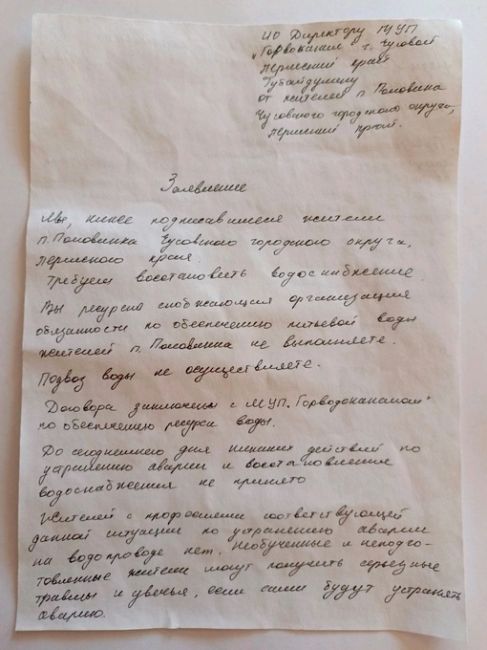 ИО Директору МУП
„Горводоканал г. Чусовой
Пермский край
Губайдулину
от жителей п. Половинка
Чусовского городского округа,
Пермский край.
Заявление
Мы, ниже подписавшиеся жители
п. Половинка Чусовского городского округа,
Пермского края.
Требуем восстановить водоснабжение.
Вы ресурсно снабжающая организация
обязанности по обеспечению питьевой воды
жителей п. Половинка не выполняете.
Подвоз воды не осуществляете.
Договора заключены с МУП „Горводоканалом"
по обеспечению ресурса воды.
До сегодняшнего дня никаких действий по
устранению аварии и восстановления
водоснабжения не принято
Жителей с профессиями соответствующей
данной ситуации по устранению аварии
на водопроводе нет. Необученные и неподго-
товленные жители могут получить серьезные
травмы и увечья, если сами будут устранять
аварию.